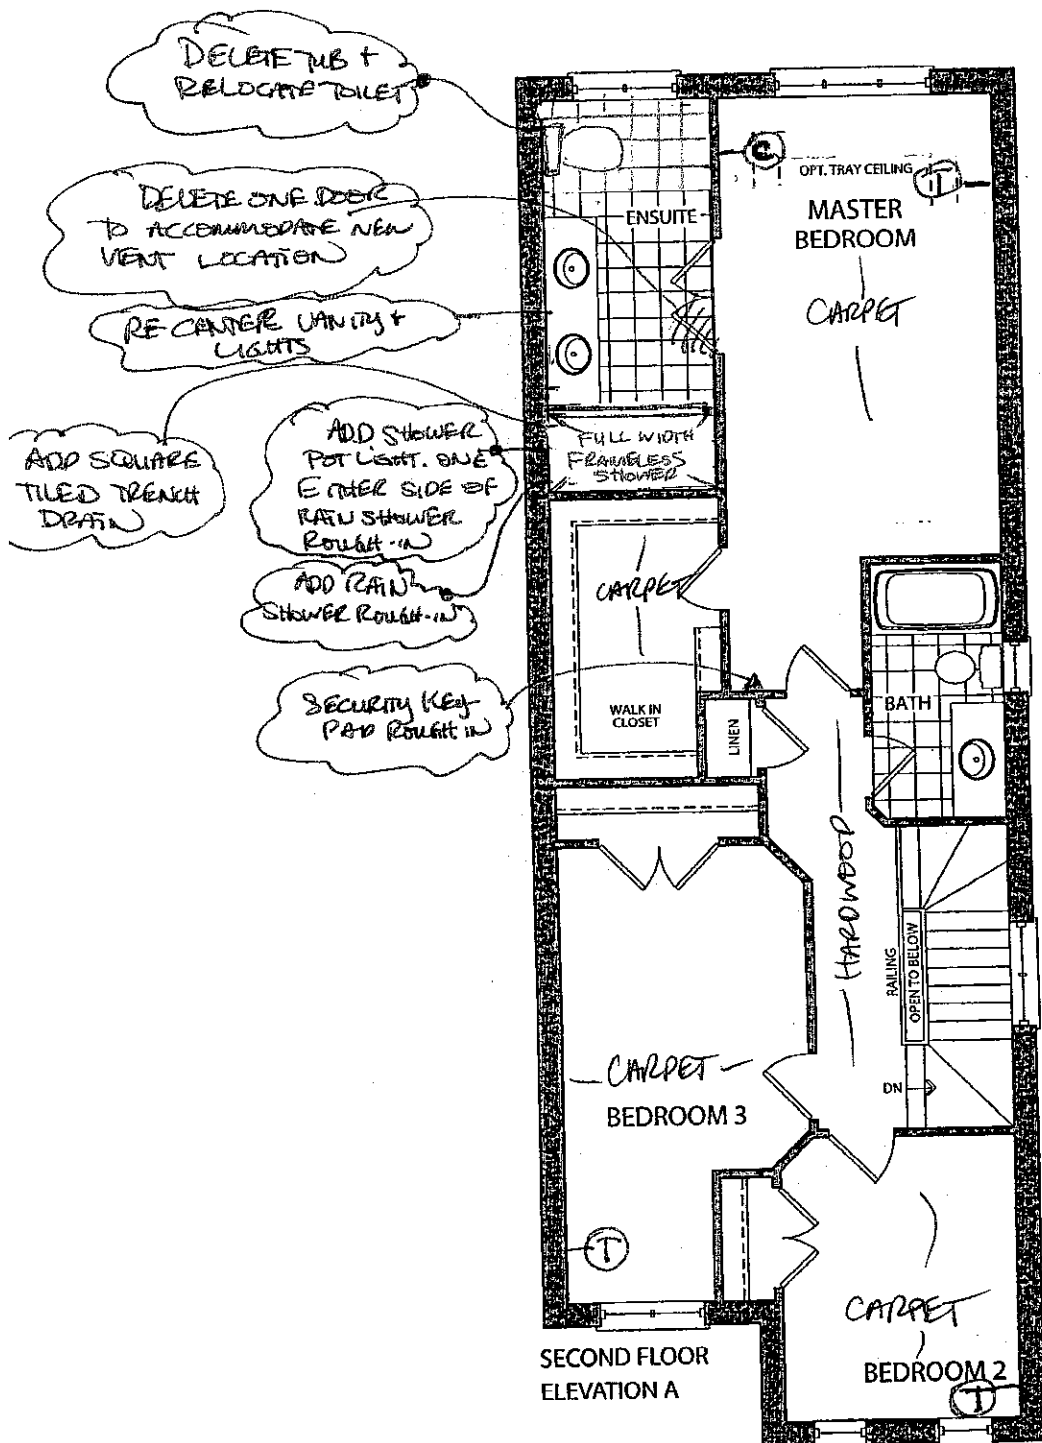 DELETE TUB +
RELOCATE TOILET
DELETE ONE DOOR
TO ACCOMMODATE NEW
VENT LOCATION
RE CENTER VANITY +
LIGHTS
ADD SQUARE
TILED TRENCH
DRAIN
ADD SHOWER
POT LIGHT. ONE
EITHER SIDE OF
RAIN SHOWER
ROUGH-IN
ADD RAIN
SHOWER ROUGH-IN
SECURITY KEY
PAD ROUGH IN
ENSUITE
FULL WIDTH
FRAMELESS
SHOWER
C
OPT. TRAY CEILING
T
MASTER
BEDROOM
CARPET
CARPET
WALK IN
CLOSET
LINEN
BATH
HARDWOOD
RAILING
OPEN TO BELOW
DN
CARPET
BEDROOM 3
T
CARPET
BEDROOM 2
T
SECOND FLOOR
ELEVATION A